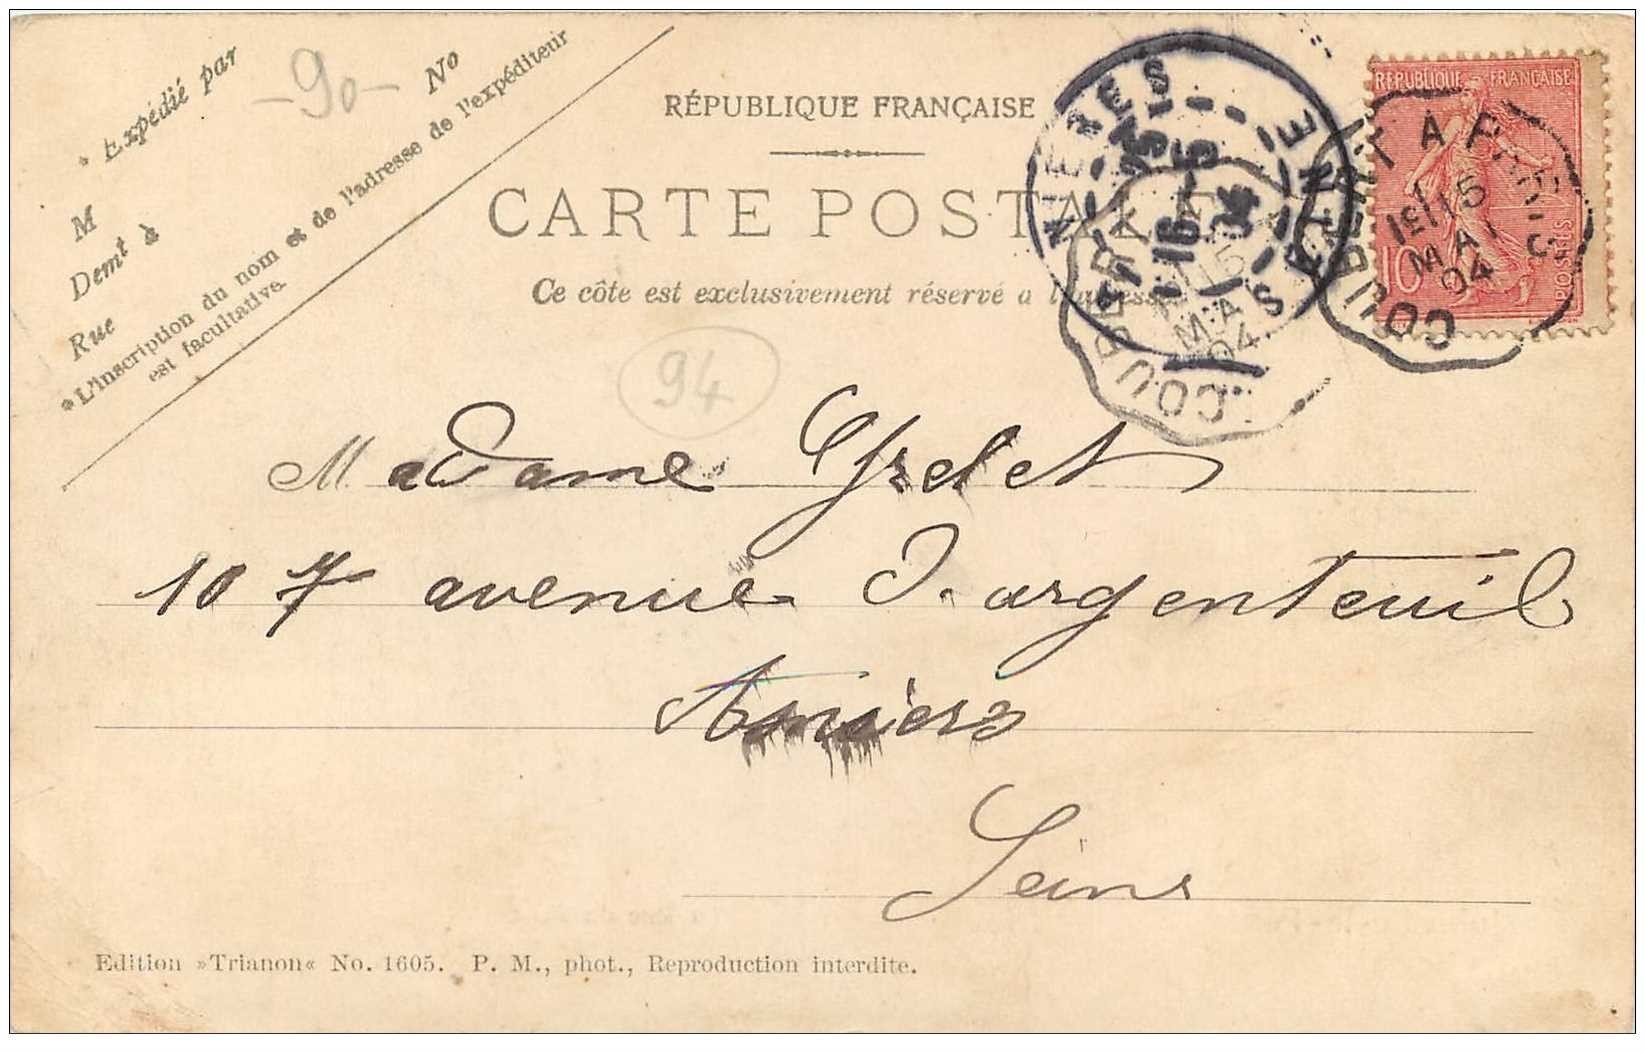 * Expédié par
M
Demt à
Rue No
* L'inscription du nom et de l'adresse de l'expéditeur
est facultative.
-90-
RÉPUBLIQUE FRANÇAISE
CARTE POSTALE
Ce côte est exclusivement réservé a l'adresse
94
RÉPUBLIQUE FRANÇAISE
10
POSTES
COUBERT A PARIS
1e/15
MAI
04
ASNIERES
SEINE
16 - 5
04
COUBERT
15
MAI
04
Madame
107 avenue d'argenteuil
Asnières
Seine
Edition »Trianon« No. 1605. P. M., phot., Reproduction interdite.